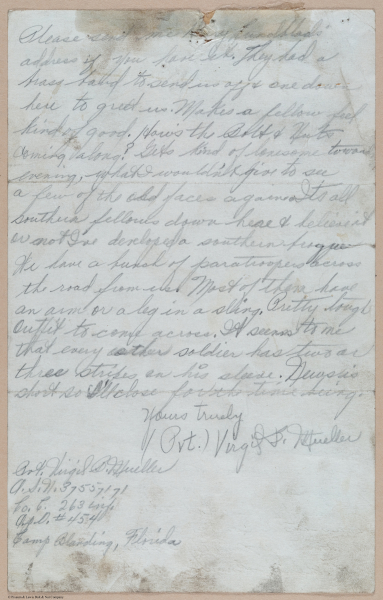 Please send me
address if you have it. They had a
brass band to send us off & one down
here to greet us. Makes a fellow feel
kind of good. Hows the Golf &
coming along? Gets kind of lonesome toward
evening, what I wouldn't give to see
a few of the old faces again. Its all
southern fellows down here & believe it
or not I've developed a southern
We have a bunch of paratroopers across
the road from us. Most of them have
an arm or a leg in a sling. Pretty tough
outfit to come across. It seems to me
that every other soldier has two or
three stripes on his sleeve. News is
short so I'll close for this time
Yours truly
(Pvt.) Virgil D. Mueller
Pvt. Virgil D. Mueller
A.S.N. 37557171
Co. C. 263 Inf.
A.P.O. # 454
Camp Blanding, Florida